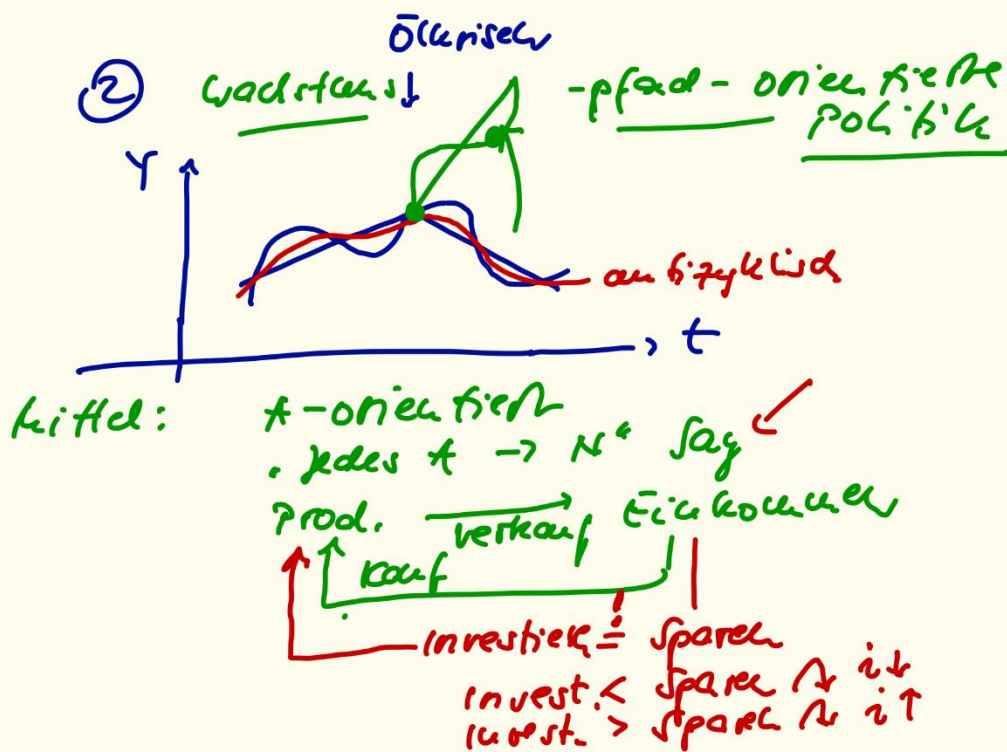 Ölkrisen
② Wachstums↓ -pfad-orientierte
Politik
Y
antizyklisch
t
Mittel: A-orientiert
„jedes A → N“ Say
Prod. → Einkommen
verkauf
Kauf
investieren = sparen
invest. < sparen ↷ i↓
invest. > sparen ↷ i↑